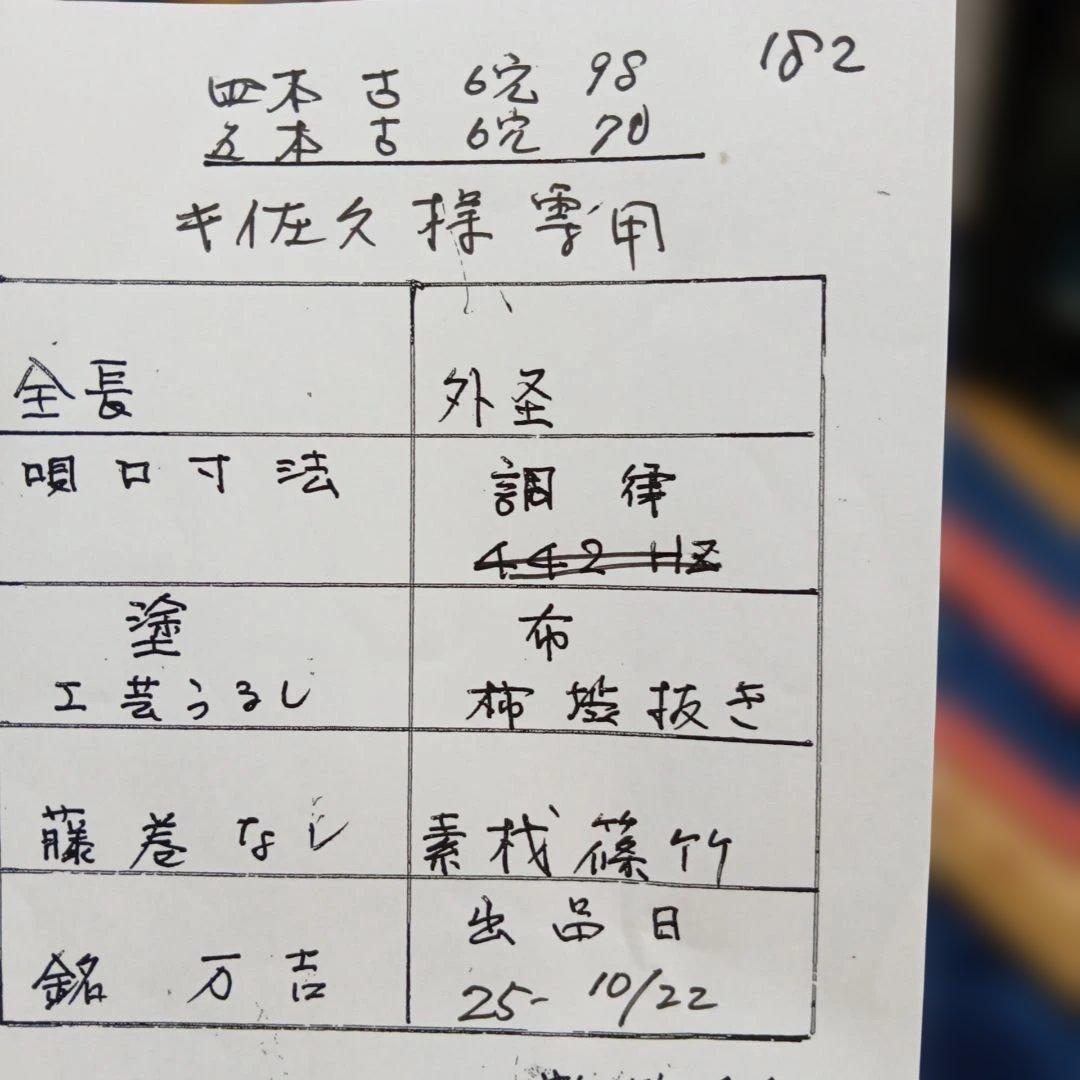 182
四本 古 6穴 98
五本 古 6穴 70
キ佐久様専用
全長
外圣
唄口寸法
調律
442 Hz
塗
工芸うるし
布
柿渋抜き
藤巻なし
素材篠竹
銘 万吉
出品日
25- 10/22